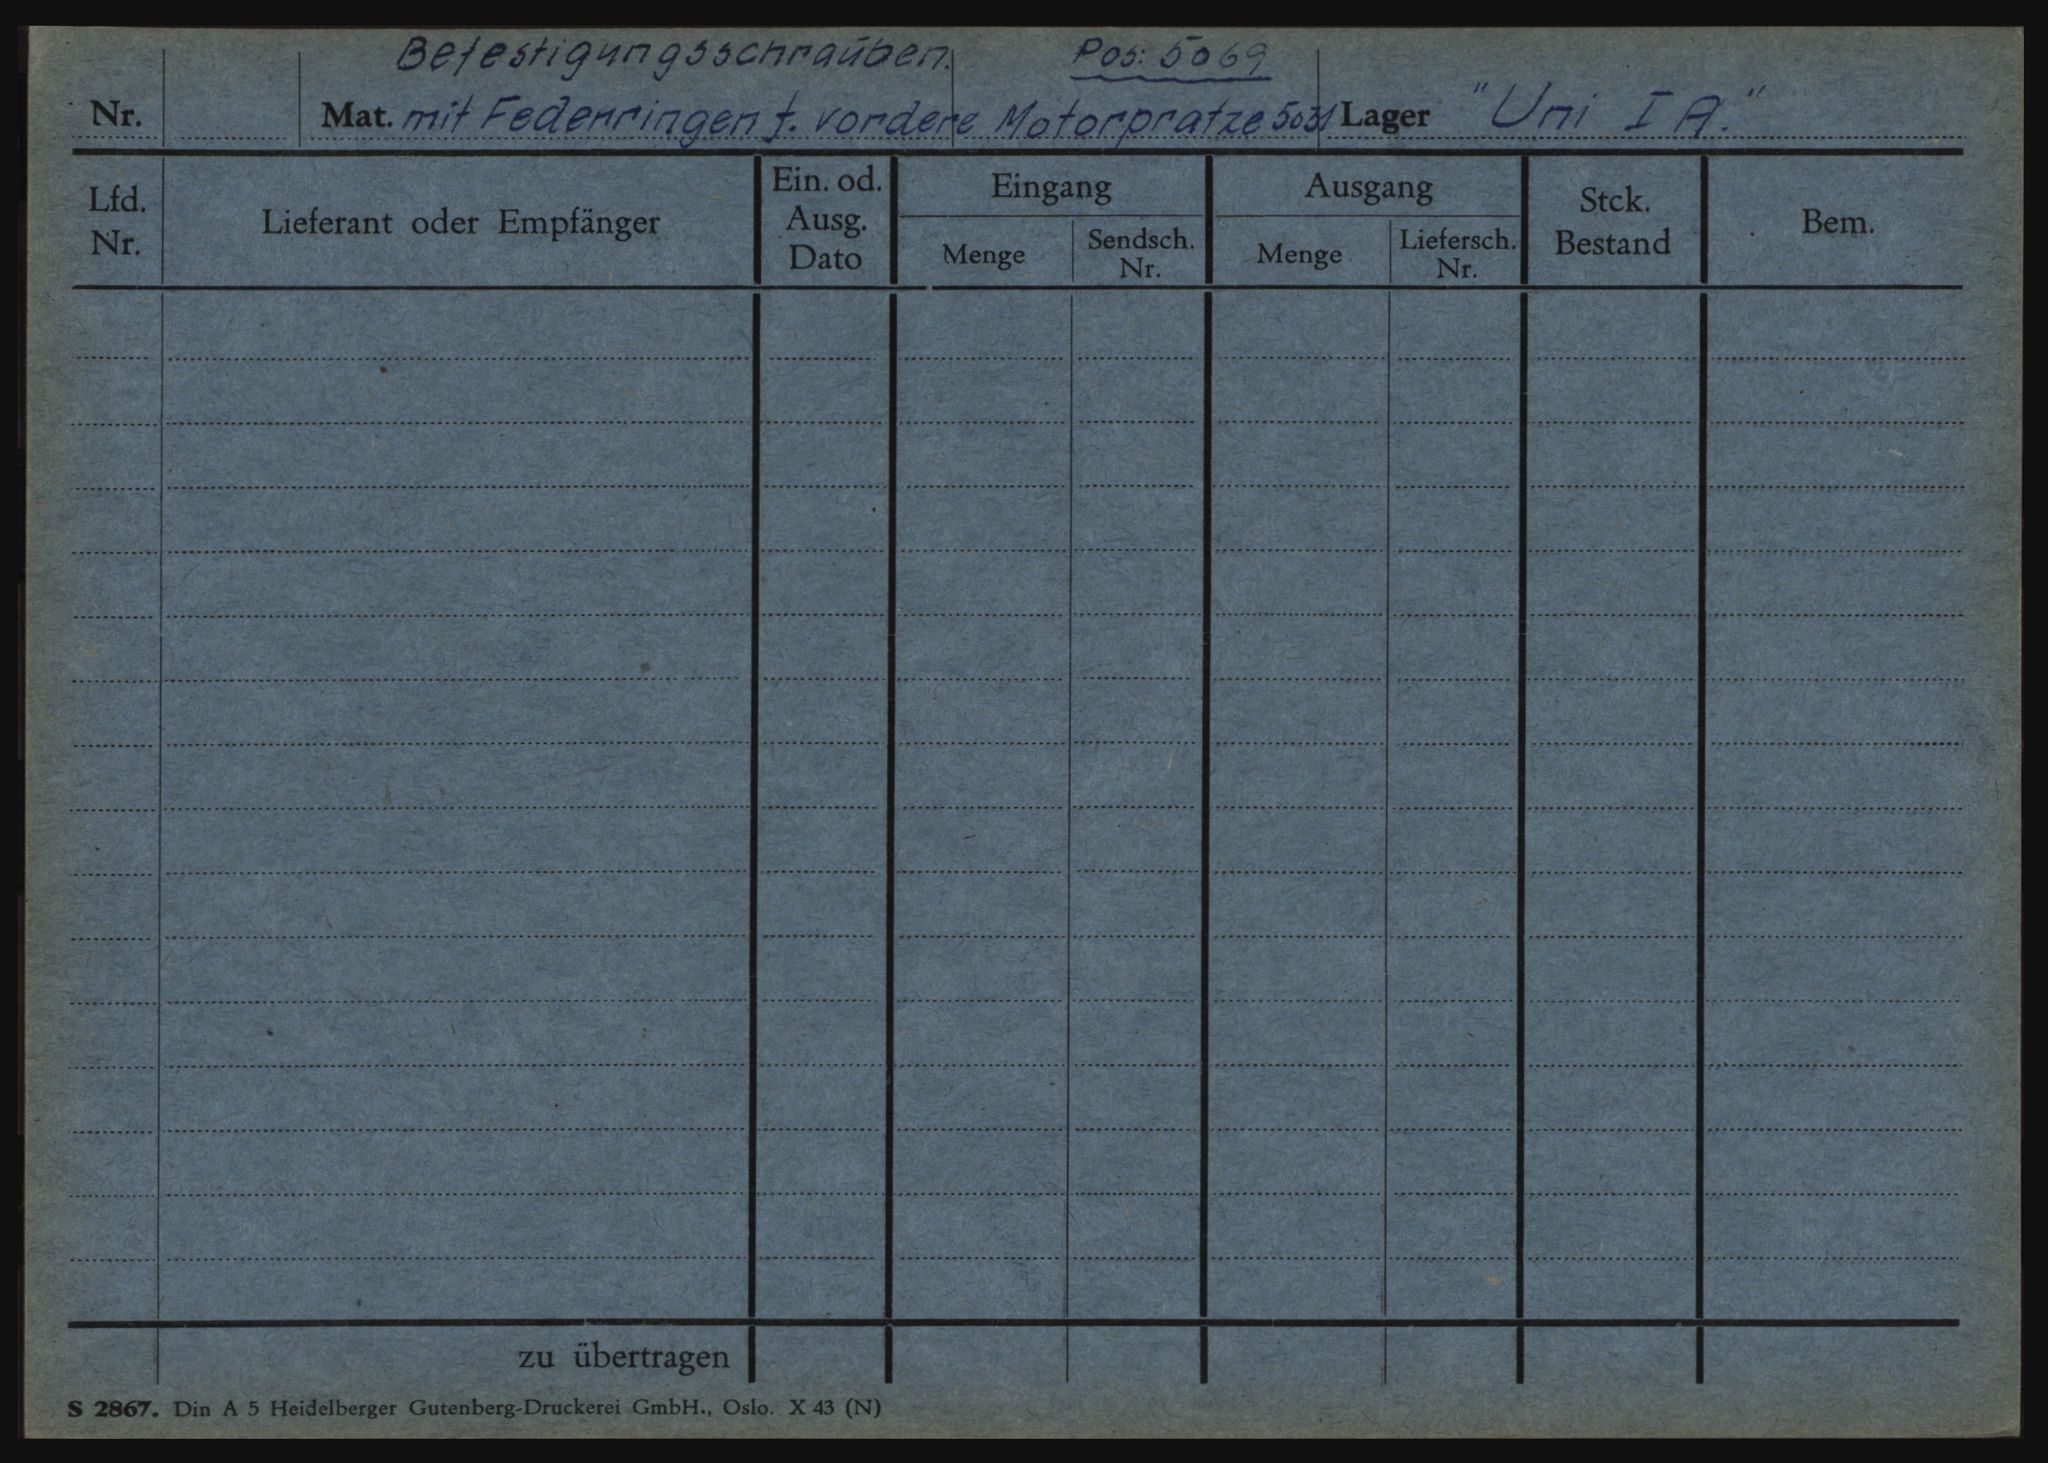 Befestigungsschrauben. Pos: 5069
Nr. Mat. mit Federringen f. vordere Motorpratze 5031 Lager "Uni I A."
Lfd. Nr. Lieferant oder Empfänger Ein. od. Ausg. Dato Eingang Ausgang Stck. Bestand Bem.
Menge Sendsch. Nr. Menge Liefersch. Nr.
zu übertragen
S 2867. Din A 5 Heidelberger Gutenberg-Druckerei GmbH., Oslo. X 43 (N)